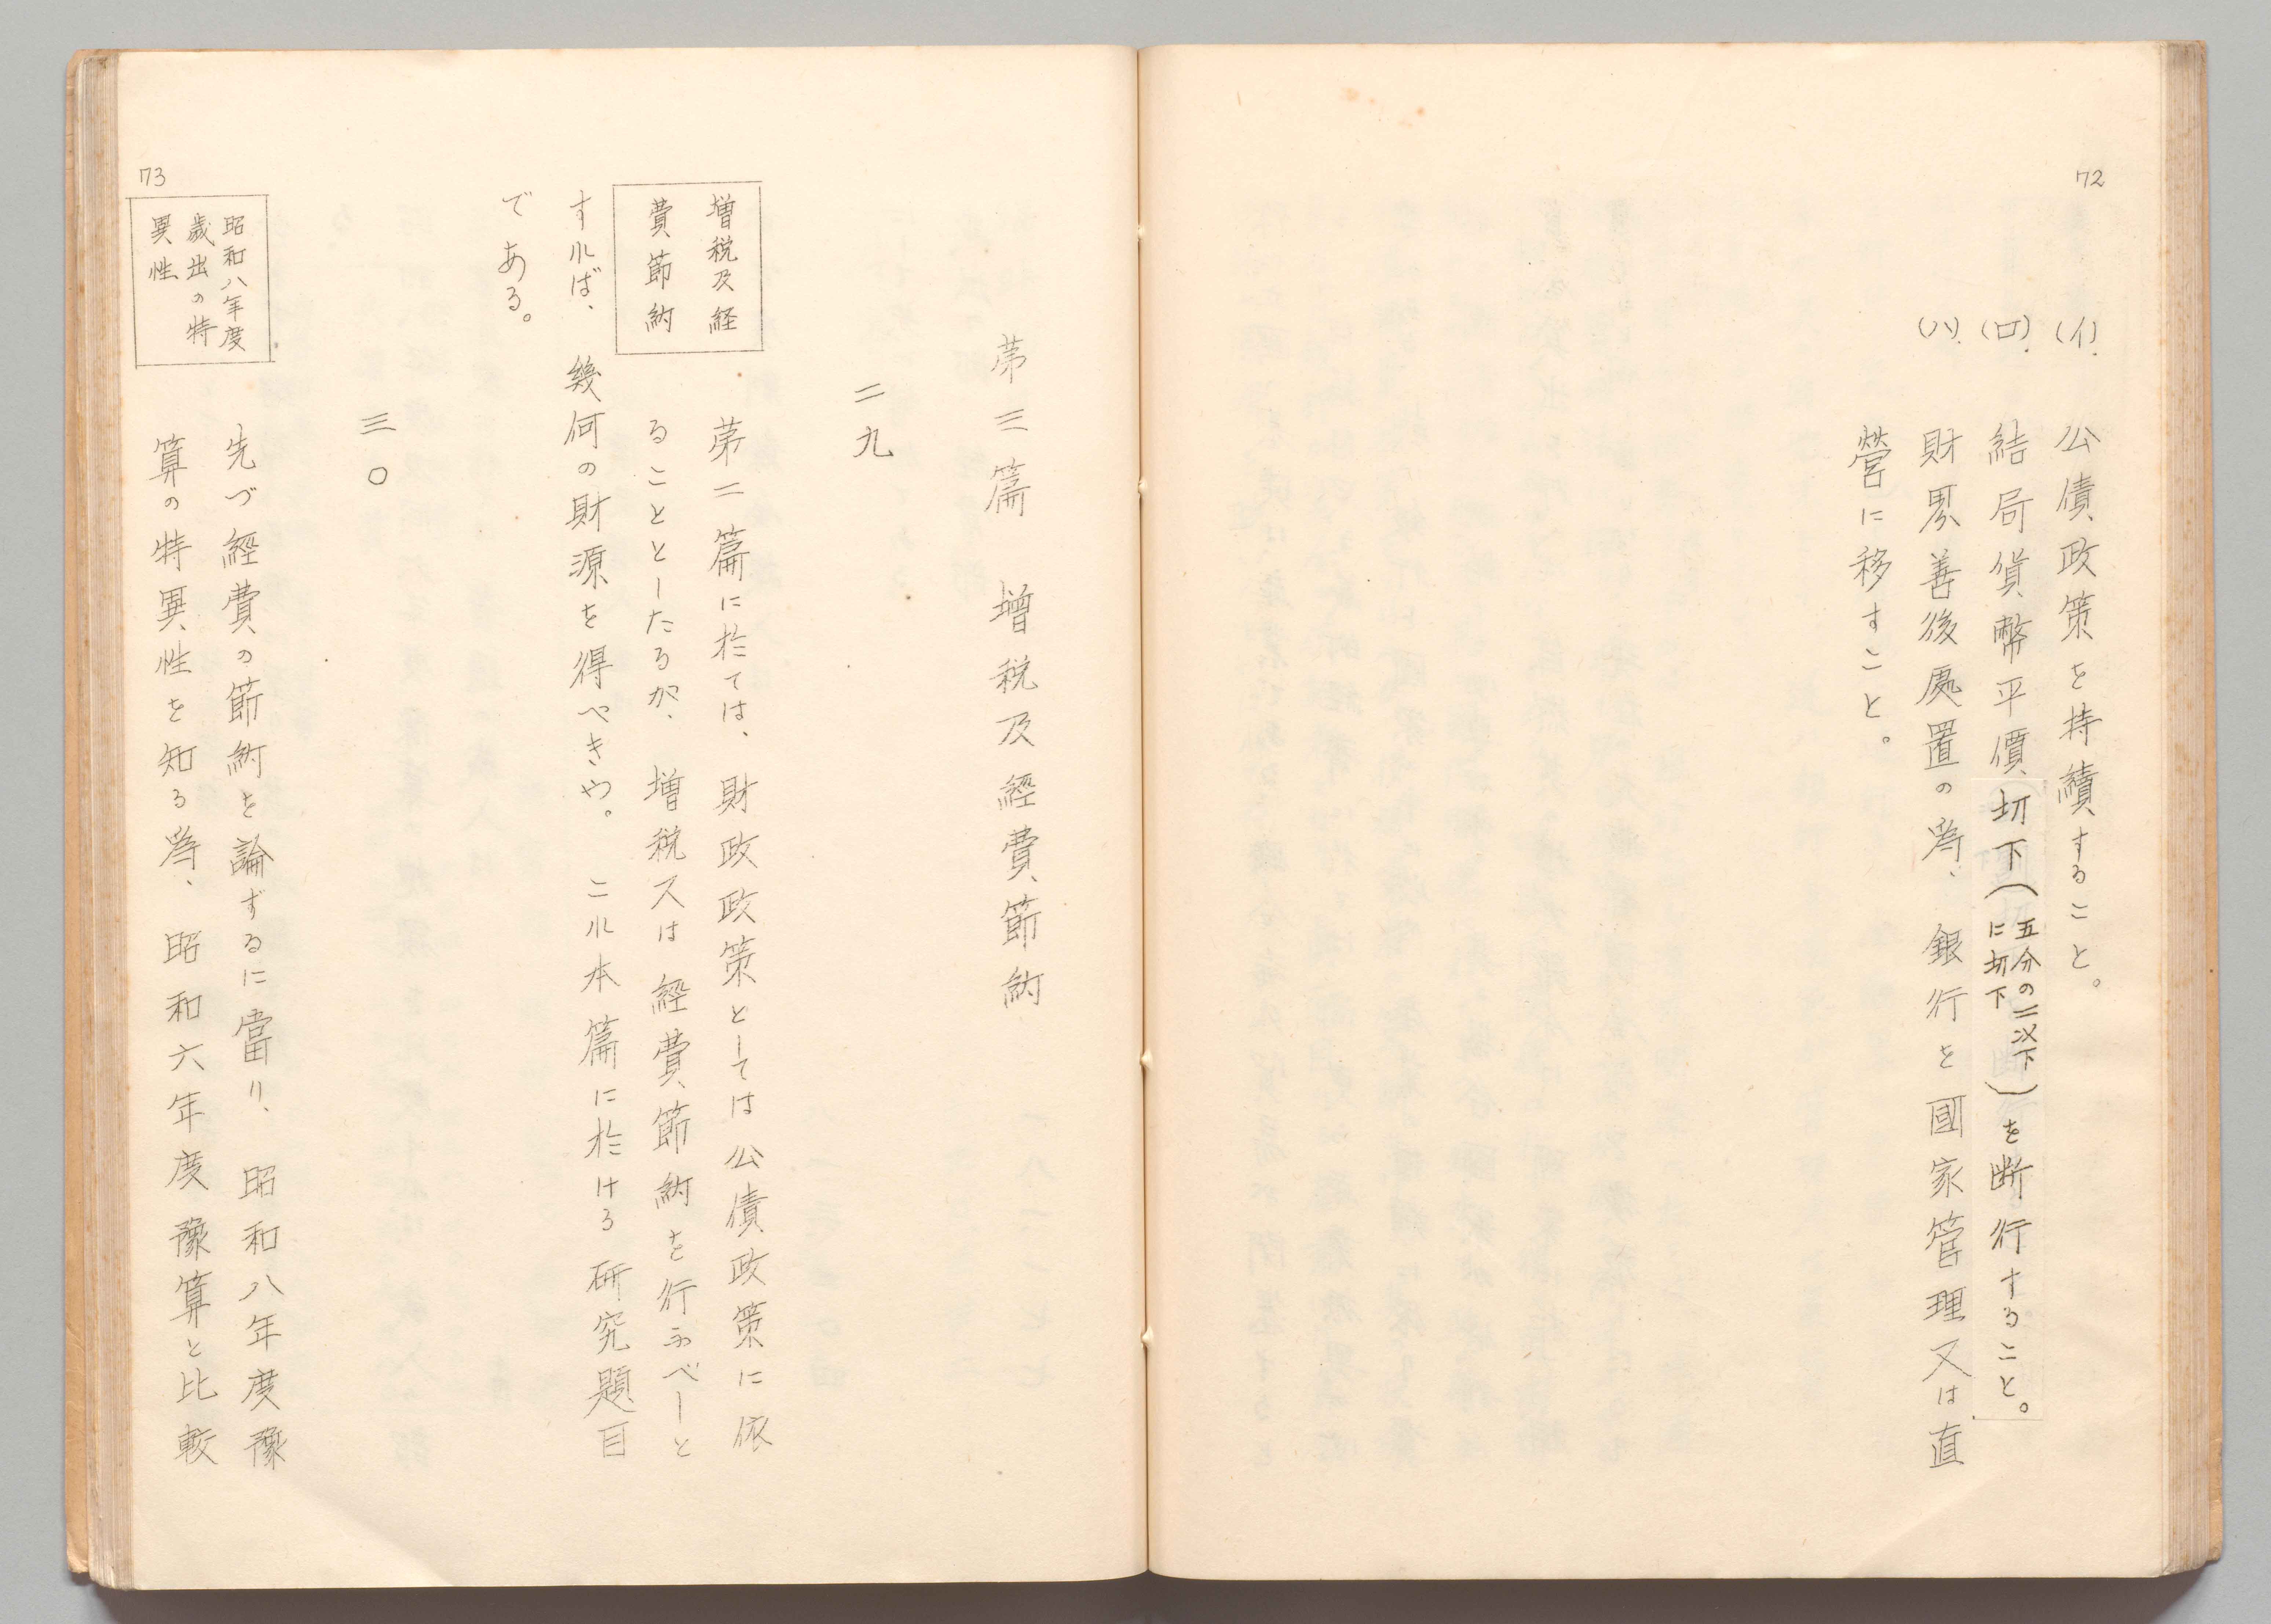 72
(イ). 公債政策を持續すること。
(ロ). 結局貨幣平價切下(五分の二以下に切下)を断行すること。
(ハ). 財界善後處置の為、銀行を國家管理又は直
營に移すこと。
第三篇 増税及經費節約
二九
増税及経
費節約
第二篇に於ては、財政政策としては公債政策に依
ることとしたるが、増税又は經費節約を行ふべしと
すれば、幾何の財源を得べきや。これ本篇に於ける研究題目
である。
三〇
73
昭和八年度
歳出の特
異性
先づ經費の節約を論ずるに當り、昭和八年度豫
算の特異性を知る為、昭和六年度豫算と比較